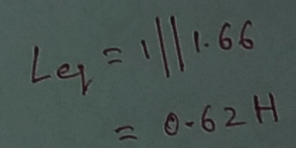 Leq = 1 || 1.66
= 0.62 H